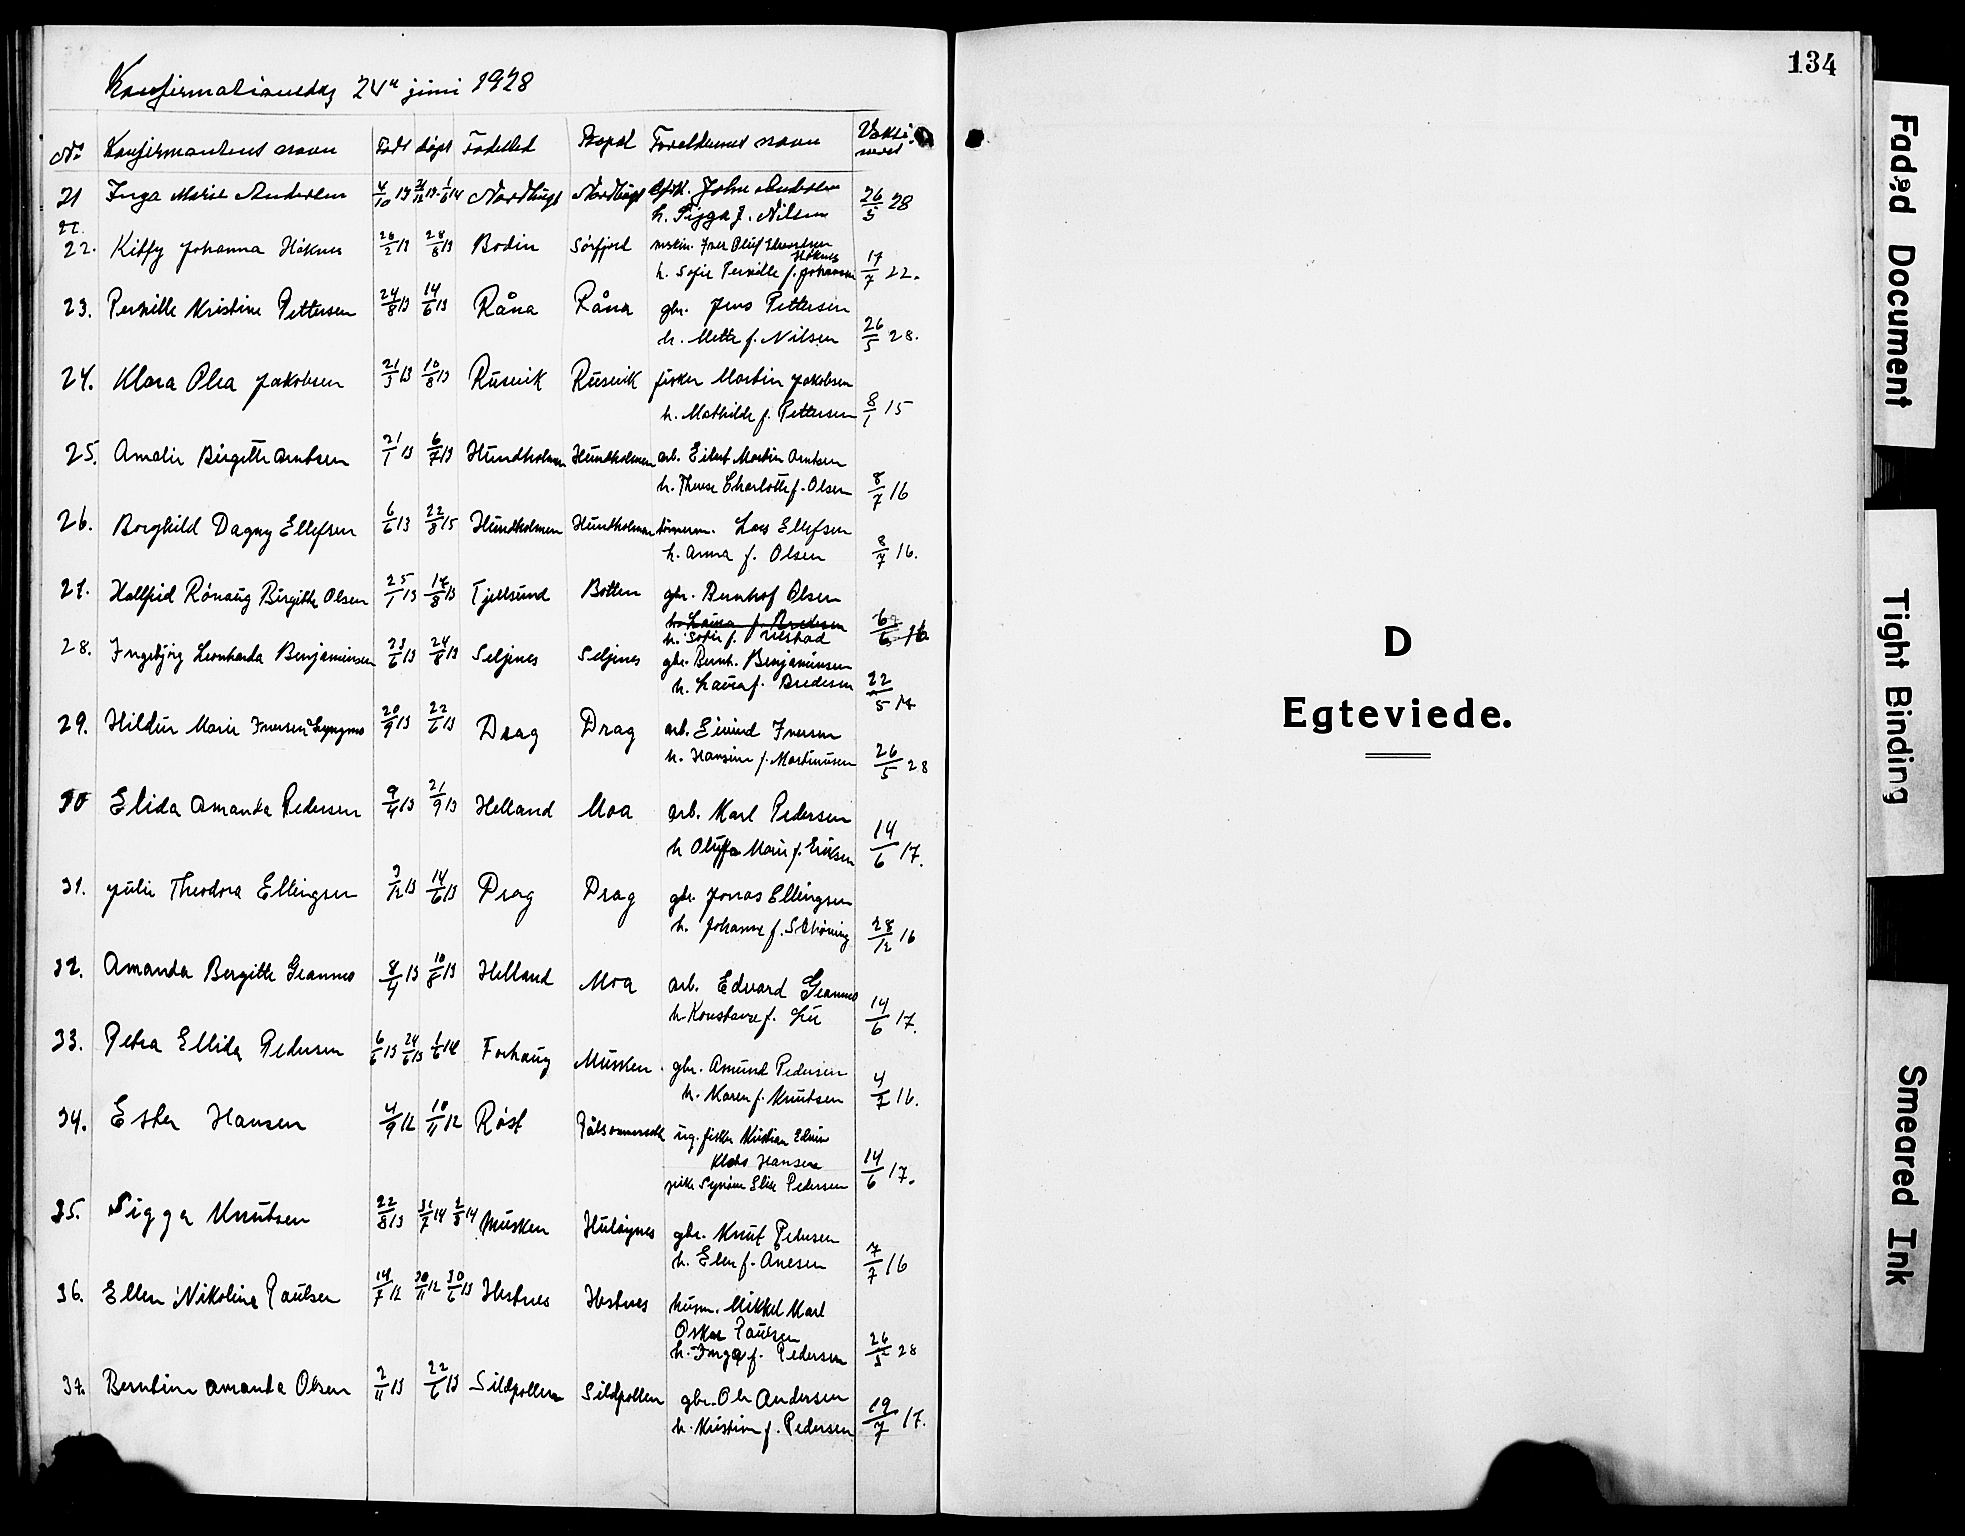 Konfirmationsdag 24de juni 1928
No Konfirmantens navn Født døpt Fødested Bopæl Foreldrenes navn Vaksineret
21 Inga Marie Andersen 4/10 13 1/6 14 Nordbugt Nordbugt John Andersen 26/5 28
h. Sigga f. Nilsen
22. Kitty Johanna Håknes 26/2 13 28/8 13 Bodin Sörfjord maskin. Iver Oluf Edvardsen
Håknes
h. Sofie Pernille f. Johansen 17/7 22.
23. Pernille Kristine Pettersen 24/8 13 14/6 13 Råna Råna gbr. Jens Pettersen
h. Mette f. Nilsen 26/5 28.
24. Klara Olea Jakobsen 21/3 13 10/8 13 Rusvik Rusvik fisker Martin Jakobsen
h. Mathilde f. Pettersen 8/1 15
25. Amalie Birgitte Arntsen 21/1 13 6/7 13 Hundholmen Hundholmen arb. Eilert Martin Arntsen
h. Therese Charlotte f. Olsen 8/7 16
26. Borghild Dagny Ellefsen 6/6 13 22/8 15 Hundholmen Hundholmen tømrerm. Lars Ellefsen
h. Anna f. Olsen 8/7 16.
27. Hallfrid Rönaug Birgitte Olsen 25/1 13 17/8 13 Tjellsund Botten gbr. Bernhof Olsen
h. Laura f. Bredesen
h. Sofie f. 6/6 16
28. Ingebjörg Leonharda Benjaminsen 23/6 13 24/8 13 Seljenes Seljenes gbr. Bernh. Benjaminsen
h. Laura f. Bredesen 22/5 14
29. Hildur Marie Iversen 20/9 13 22/6 13 Drag Drag arb. Eivind Iversen
h. Hansine f. Martinusen 26/5 28
30 Elida Amanda Pedersen 9/4 13 21/9 13 Helland Moa arb. Karl Pedersen
h Oluffa Marie f. Eriksen 14/6 17.
31. Julie Theodora Ellingsen 3/12 13 14/6 13 Drag Drag gbr. Jonas Ellingsen
h. Johanne f. Schöning 28/12 16
32. Amanda Bergitte Grannes 8/4 13 10/8 13 Helland Moa arb. Edvard Grannes
h. Konstanse f. Lie 14/6 17.
33. Petra Ellida Pedersen 6/6 13 24/6 13 1/6 14 Forhaug Musken. gbr. Amund Pedersen
h. Karen f. Knutsen 4/7 16.
34. Ester Hansen 4/9 12 10/11 12 Røst ug. fisker Kristian Edvin
Klaos Hansen
pike Synöve Elise Pedersen 14/6 17.
35. Sigga Knutsen 22/8 13 31/7 14 2/8 14 Musken Huløynes gbr. Knut Pedersen
h. Elen f. Anesen 7/7 16
36. Ellen Nikoline Paulsen 14/7 12 30/11 12 30/6 13 Hestnes Hestnes husm. Mikkel Karl
Oskar Paulsen
h. Inga f. Pedersen 26/5 28
37. Berntine Amanda Olsen 2/11 13 22/6 13 Sildpollen Sildpollen gbr. Ole Andersen
h. Kristine f. Pedersen 19/7 17.
134
D
Egteviede.
Faded Document
Tight Binding
Smeared Ink